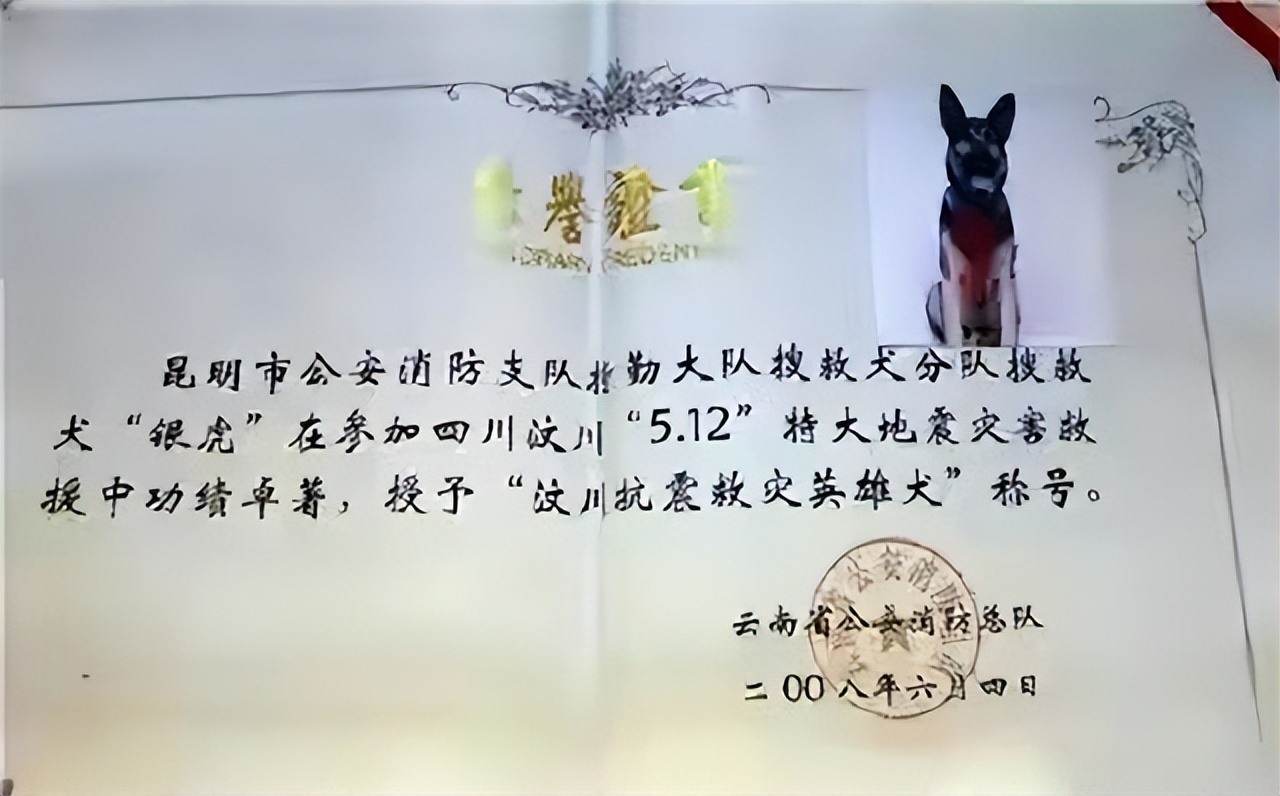 譽證書
昆明市公安消防支队特勤大队搜救犬分队搜救
犬“银虎”在参加四川汶川“5.12”特大地震灾害救
援中功绩卓著，授予“汶川抗震救灾英雄犬”称号。
云南省公安消防总队
二00八年六月四日